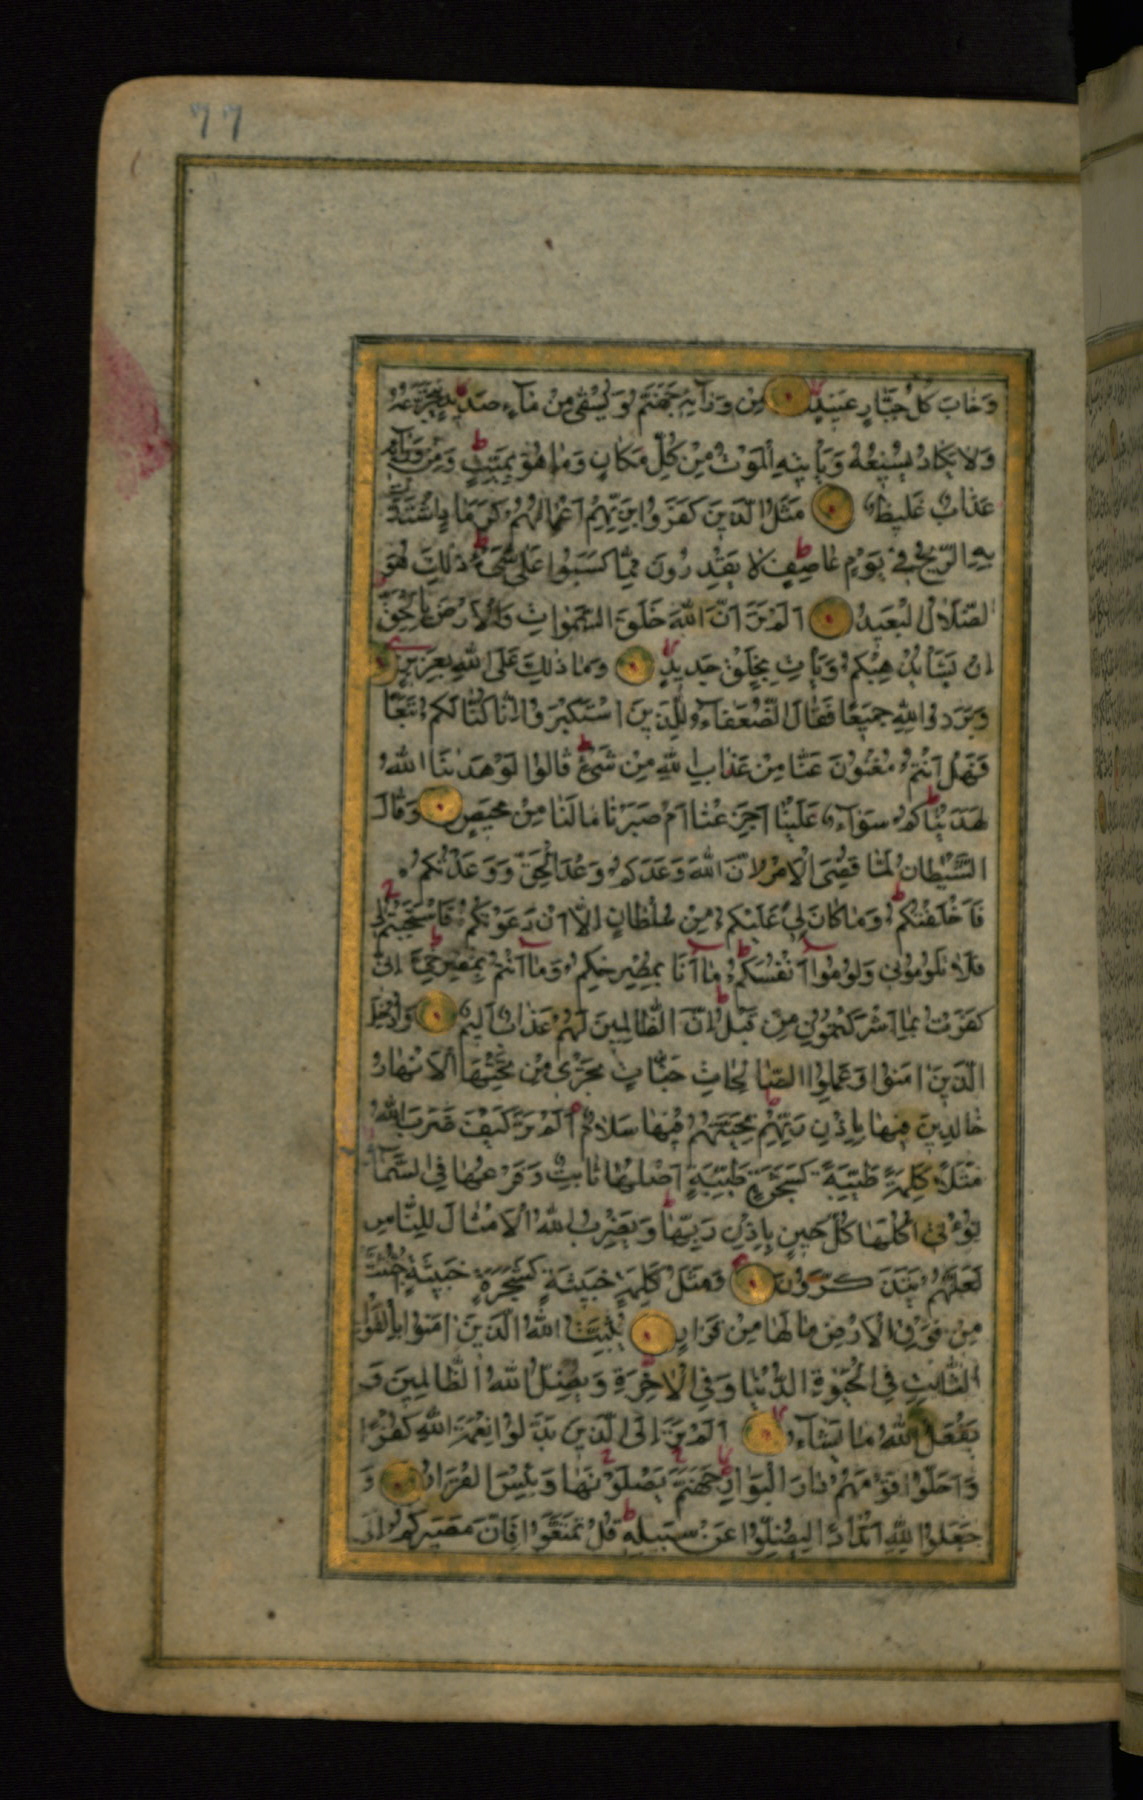 77
وَخَابَ كُلُّ جَبَّارٍ عَنِيدٍ مِنْ وَرَآئِهِ جَهَنَّمُ وَيُسْقَى مِنْ مَآءٍ صَدِيدٍ يَتَجَرَّعُهُ
وَلَا يَكَادُ يُسِيغُهُ وَيَأْتِيهِ الْمَوْتُ مِنْ كُلِّ مَكَانٍ وَمَا هُوَ بِمَيِّتٍ وَمِنْ وَرَآئِهِ
عَذَابٌ غَلِيظٌ مَثَلُ الَّذِينَ كَفَرُوا بِرَبِّهِمْ أَعْمَالُهُمْ كَرَمَادٍ اشْتَدَّتْ
بِهِ الرِّيحُ فِي يَوْمٍ عَاصِفٍ لَا يَقْدِرُونَ مِمَّا كَسَبُوا عَلَى شَيْءٍ ذَلِكَ هُوَ
الضَّلَالُ الْبَعِيدُ أَلَمْ تَرَ أَنَّ اللَّهَ خَلَقَ السَّمَوَاتِ وَالْأَرْضَ بِالْحَقِّ
إِنْ يَشَأْ يُذْهِبْكُمْ وَيَأْتِ بِخَلْقٍ جَدِيدٍ وَمَا ذَلِكَ عَلَى اللَّهِ بِعَزِيزٍ
وَبَرَزُوا لِلَّهِ جَمِيعًا فَقَالَ الضُّعَفَآءُ لِلَّذِينَ اسْتَكْبَرُوا إِنَّا كُنَّا لَكُمْ تَبَعًا
فَهَلْ أَنْتُمْ مُغْنُونَ عَنَّا مِنْ عَذَابِ اللَّهِ مِنْ شَيْءٍ قَالُوا لَوْ هَدَينَا اللَّهُ
لَهَدَيْنَاكُمْ سَوَآءٌ عَلَيْنَا أَجَزِعْنَا أَمْ صَبَرْنَا مَا لَنَا مِنْ مَحِيصٍ وَقَالَ
الشَّيْطَانُ لَمَّا قُضِيَ الْأَمْرُ إِنَّ اللَّهَ وَعَدَكُمْ وَعْدَ الْحَقِّ وَوَعَدْتُكُمْ
فَأَخْلَفْتُكُمْ وَمَا كَانَ لِيَ عَلَيْكُمْ مِنْ سُلْطَانٍ إِلَّا أَنْ دَعَوْتُكُمْ فَاسْتَجَبْتُمْ لِي
فَلَا تَلُومُونِي وَلُومُوا أَنْفُسَكُمْ مَا أَنَا بِمُصْرِخِكُمْ وَمَا أَنْتُمْ بِمُصْرِخِيَّ إِنِّي
كَفَرْتُ بِمَا أَشْرَكْتُمُونِ مِنْ قَبْلُ إِنَّ الظَّالِمِينَ لَهُمْ عَذَابٌ أَلِيمٌ وَأُدْخِلَ
الَّذِينَ امَنُوا وَعَمِلُوا الصَّالِحَاتِ جَنَّاتٍ تَجْرِي مِنْ تَحْتِهَا الْأَنْهَارُ
خَالِدِينَ فِيهَا بِإِذْنِ رَبِّهِمْ تَحِيَّتُهُمْ فِيهَا سَلَامٌ أَلَمْ تَرَ كَيْفَ ضَرَبَ اللَّهُ
مَثَلًا كَلِمَةً طَيِّبَةً كَشَجَرَةٍ طَيِّبَةٍ أَصْلُهَا ثَابِتٌ وَفَرْعُهَا فِي السَّمَآءِ
تُؤْتِي أُكُلَهَا كُلَّ حِينٍ بِإِذْنِ رَبِّهَا وَيَضْرِبُ اللَّهُ الْأَمْثَالَ لِلنَّاسِ
لَعَلَّهُمْ يَتَذَكَّرُونَ وَمَثَلُ كَلِمَةٍ خَبِيثَةٍ كَشَجَرَةٍ خَبِيثَةٍ اجْتُثَّتْ
مِنْ فَوْقِ الْأَرْضِ مَا لَهَا مِنْ قَرَارٍ يُثَبِّتُ اللَّهُ الَّذِينَ امَنُوا بِالْقَوْلِ
الثَّابِتِ فِي الْحَيَوةِ الدُّنْيَا وَفِي الْآخِرَةِ وَيُضِلُّ اللَّهُ الظَّالِمِينَ وَ
يَفْعَلُ اللَّهُ مَا يَشَآءُ أَلَمْ تَرَ إِلَى الَّذِينَ بَدَّلُوا نِعْمَةَ اللَّهِ كُفْرًا
وَأَحَلُّوا قَوْمَهُمْ دَارَ الْبَوَارِ جَهَنَّمَ يَصْلَوْنَهَا وَبِئْسَ الْقَرَارُ وَ
جَعَلُوا لِلَّهِ أَنْدَادًا لِيُضِلُّوا عَنْ سَبِيلِهِ قُلْ تَمَتَّعُوا فَإِنَّ مَصِيرَكُمْ إِلَى